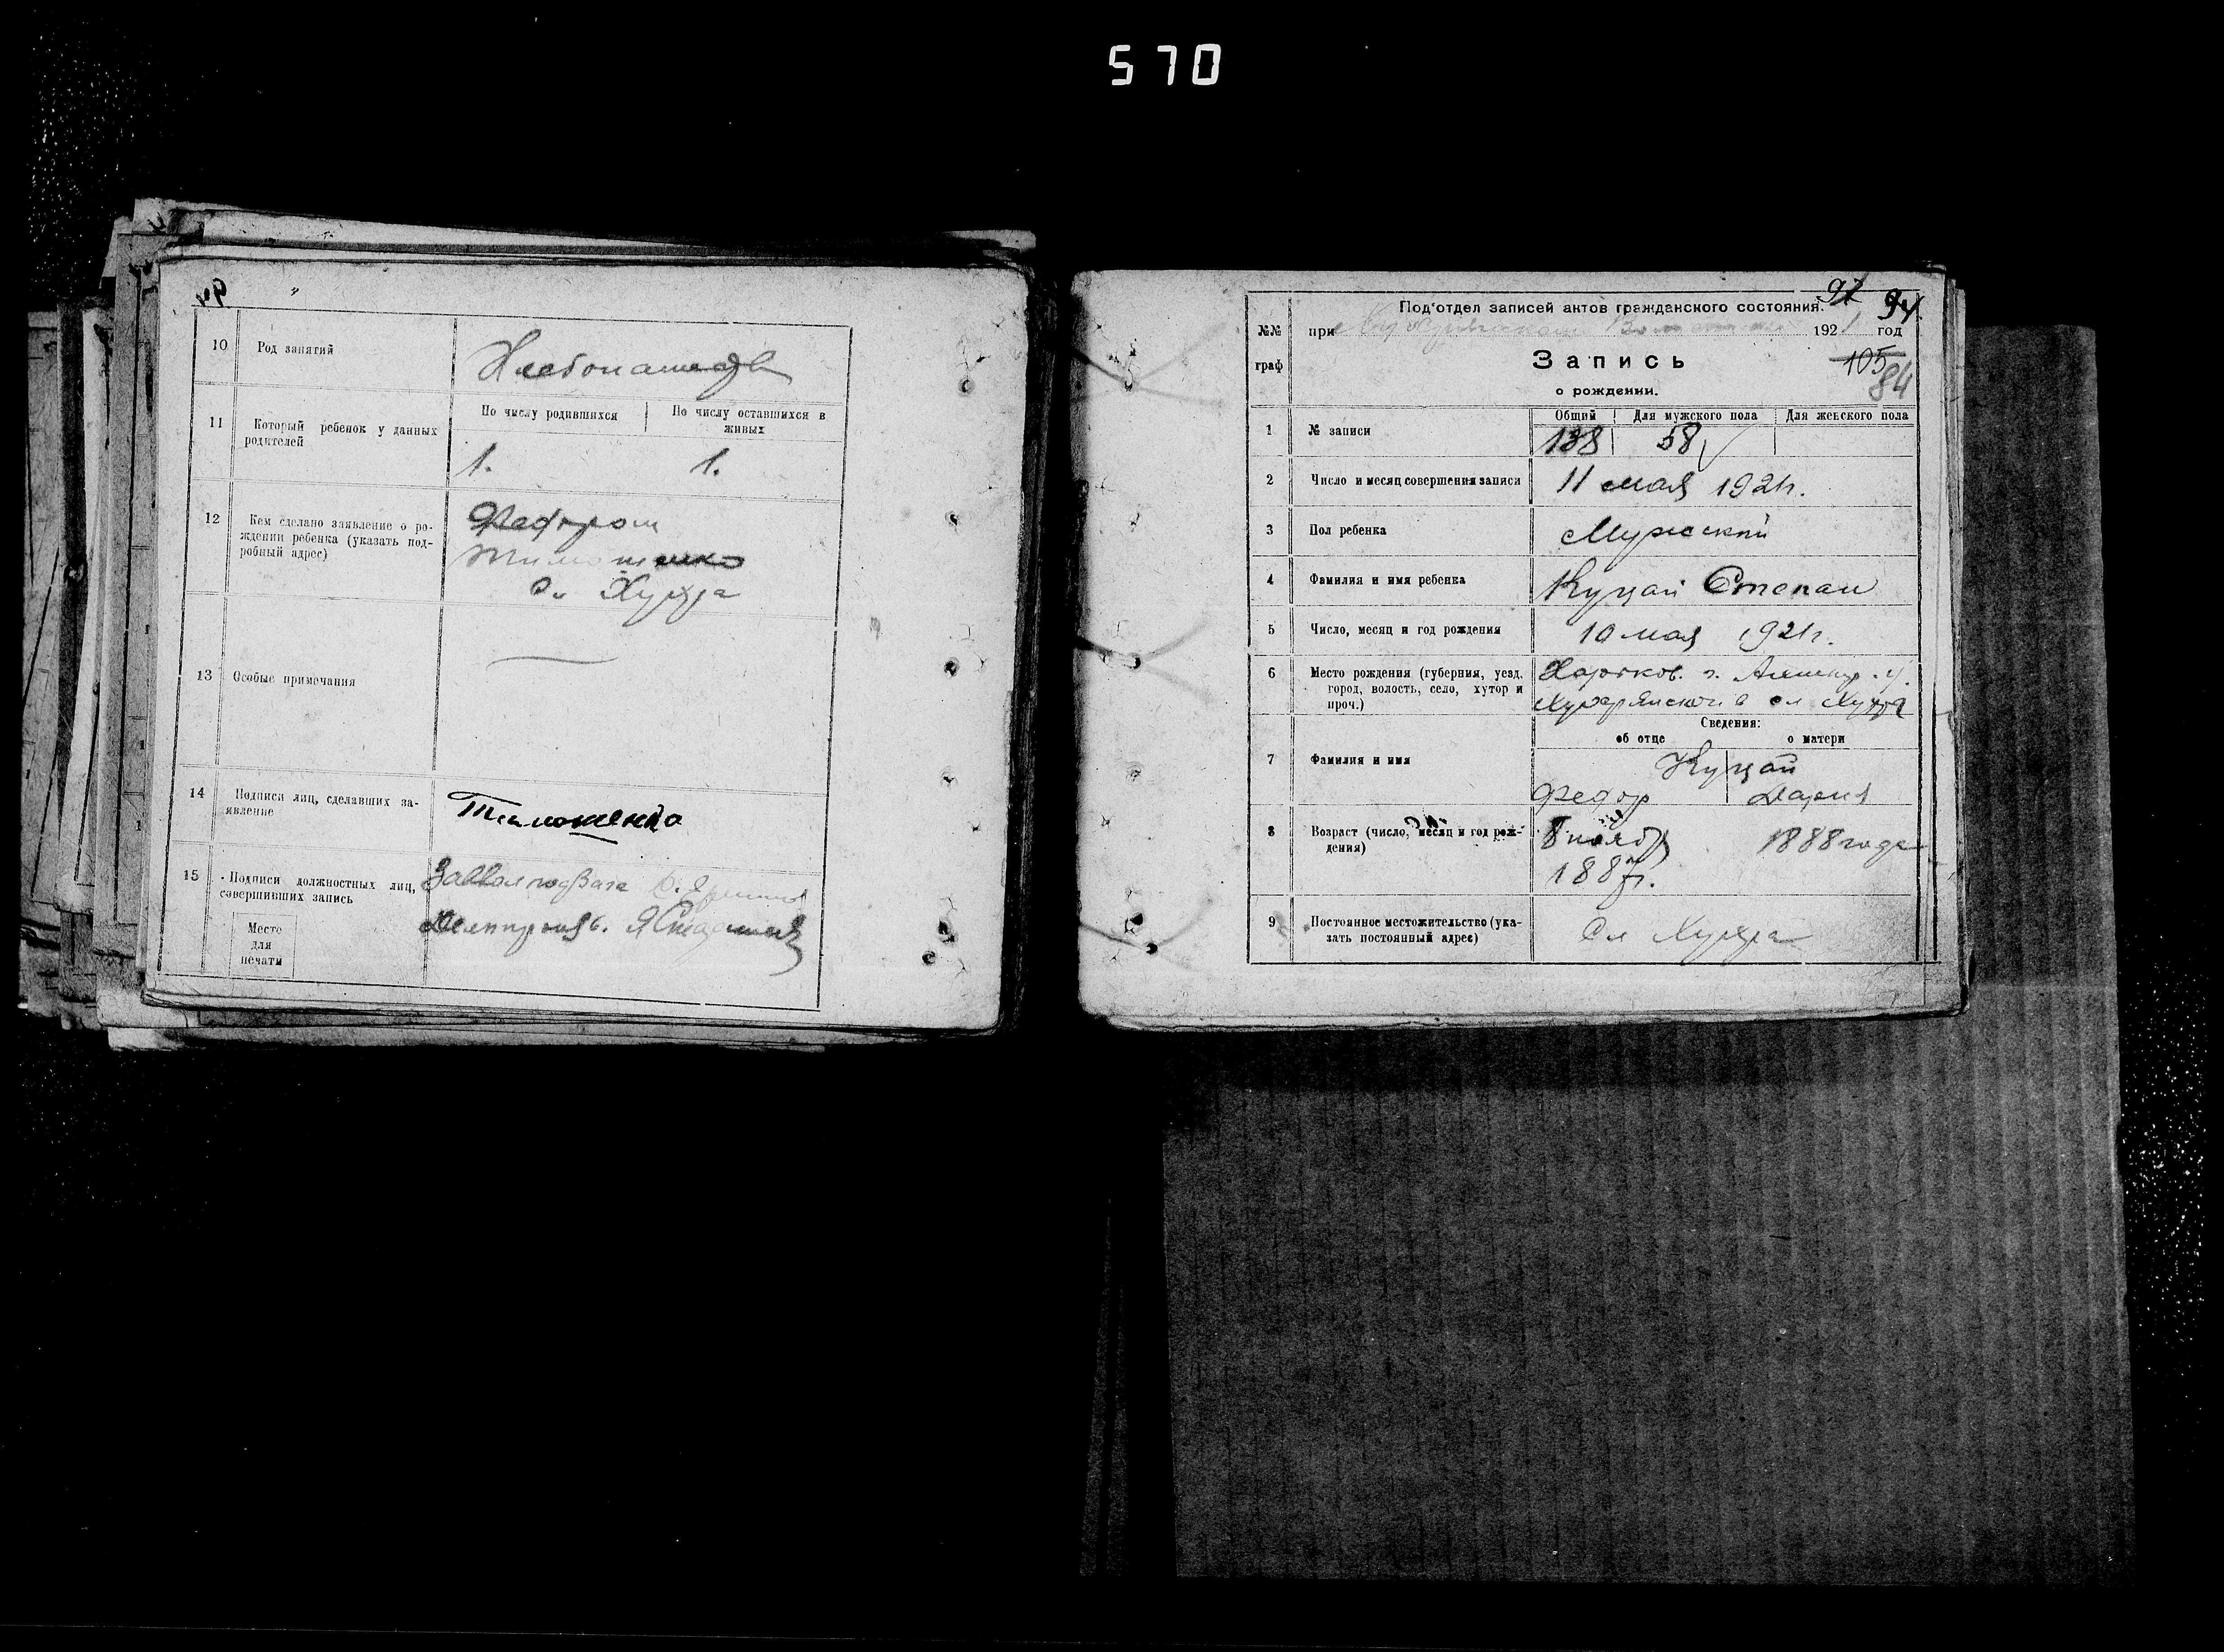 570
10 Род занятий Хлебопашедв
11 Который ребенок у данных родителей
По числу родившихся По числу оставшихся в живых
1. 1.
12 Кем сделано заявление о ро-
ждении ребенка (указать под-
робный адрес)
Федором
Тимошенко
Сл Хухра
13 Особые примечания
14 Подписи лиц, сделавших за-
явление
Тимошенко
15 Подписи должностных лиц,
совершивших запись
Место
для
печати
97 94
Под'отдел записей актов гражданского состояния.
№№ при 1921 год
граф Запись 105
84
о рождении.
Общий Для мужского пола Для женского пола
1 № записи 138 58
2 Число и месяц совершения записи 11 мая 1921г.
3 Пол ребенка Мужской
4 Фамилия и имя ребенка Куцай Степан
5 Число, месяц и год рождения 10 мая 1921г.
6 Место рождения (губерния, уезд,
город, волость, село, хутор и
проч.)
Харьков. г. у.
Хухрянской в сл Хухра
Сведения:
об отце о матери
7 Фамилия и имя Куцай
Федор Дария
8 Возраст (число, месяц и год рож-
дения)
8 ноябр 1888 года
1887г.
9 Постоянное местожительство (ука-
зать постоянный адрес)
Сл Хухра